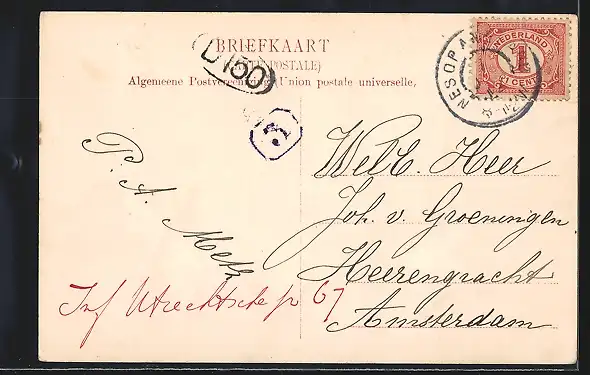 BRIEFKAART
(CARTE POSTALE)
Algemeene Postvereeniging. Union postale universelle.
D150
3
NEDERLAND
1
CENT
P. A. Metz
WelE. Heer
Joh. v. Groeningen
Heerengracht
Amsterdam
Inf Utrechtsche 67